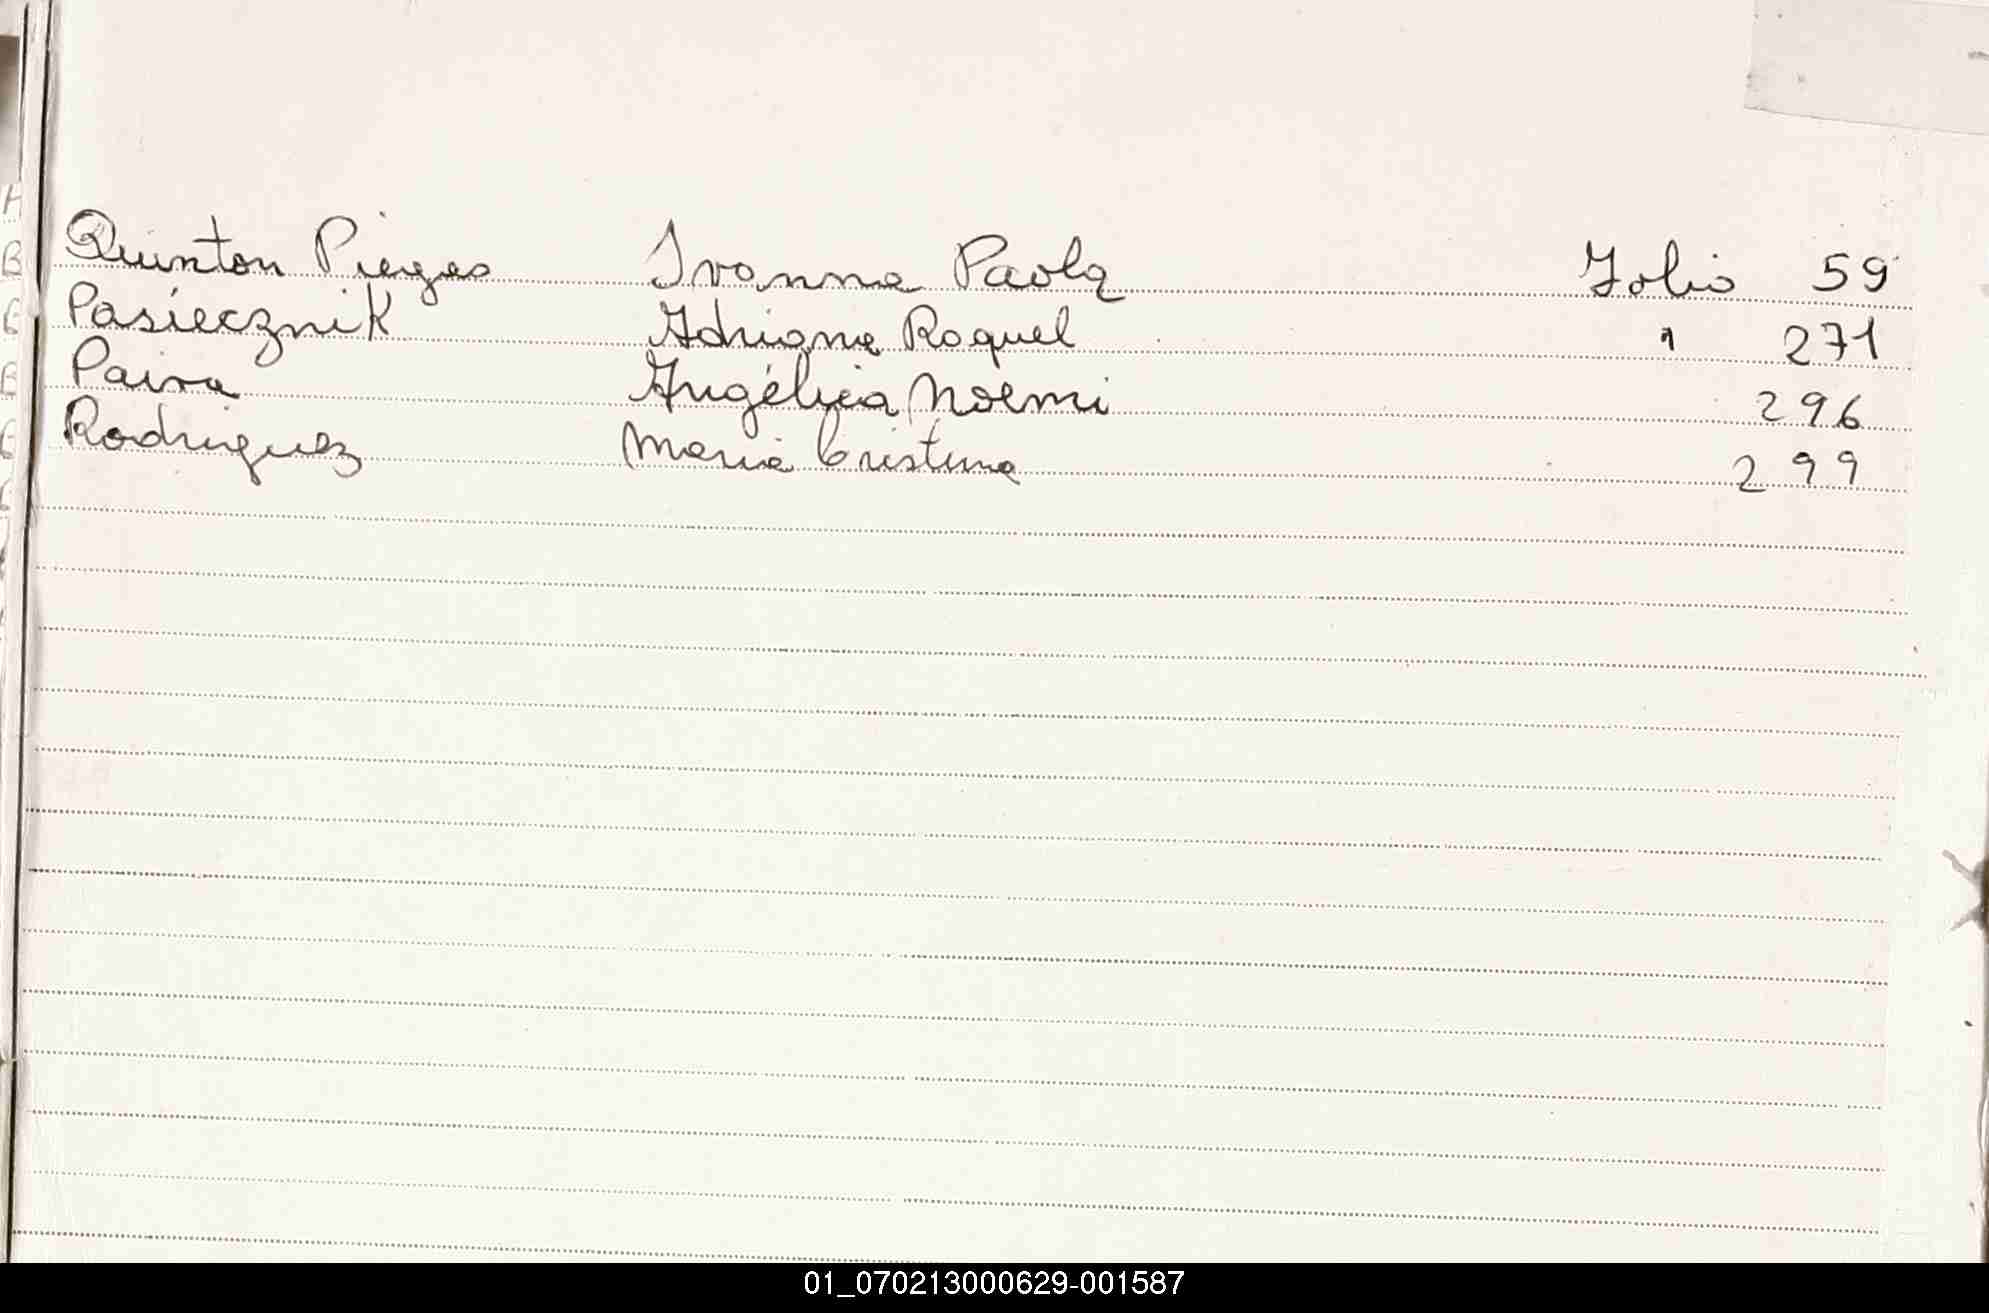 Quinton Pieges Ivanna Paola Folio 59
Pasiecznik Adriana Raquel " 271
Paiva Angélica Noemi 296
Rodriguez Maria Cristina 299
01_070213000629-001587